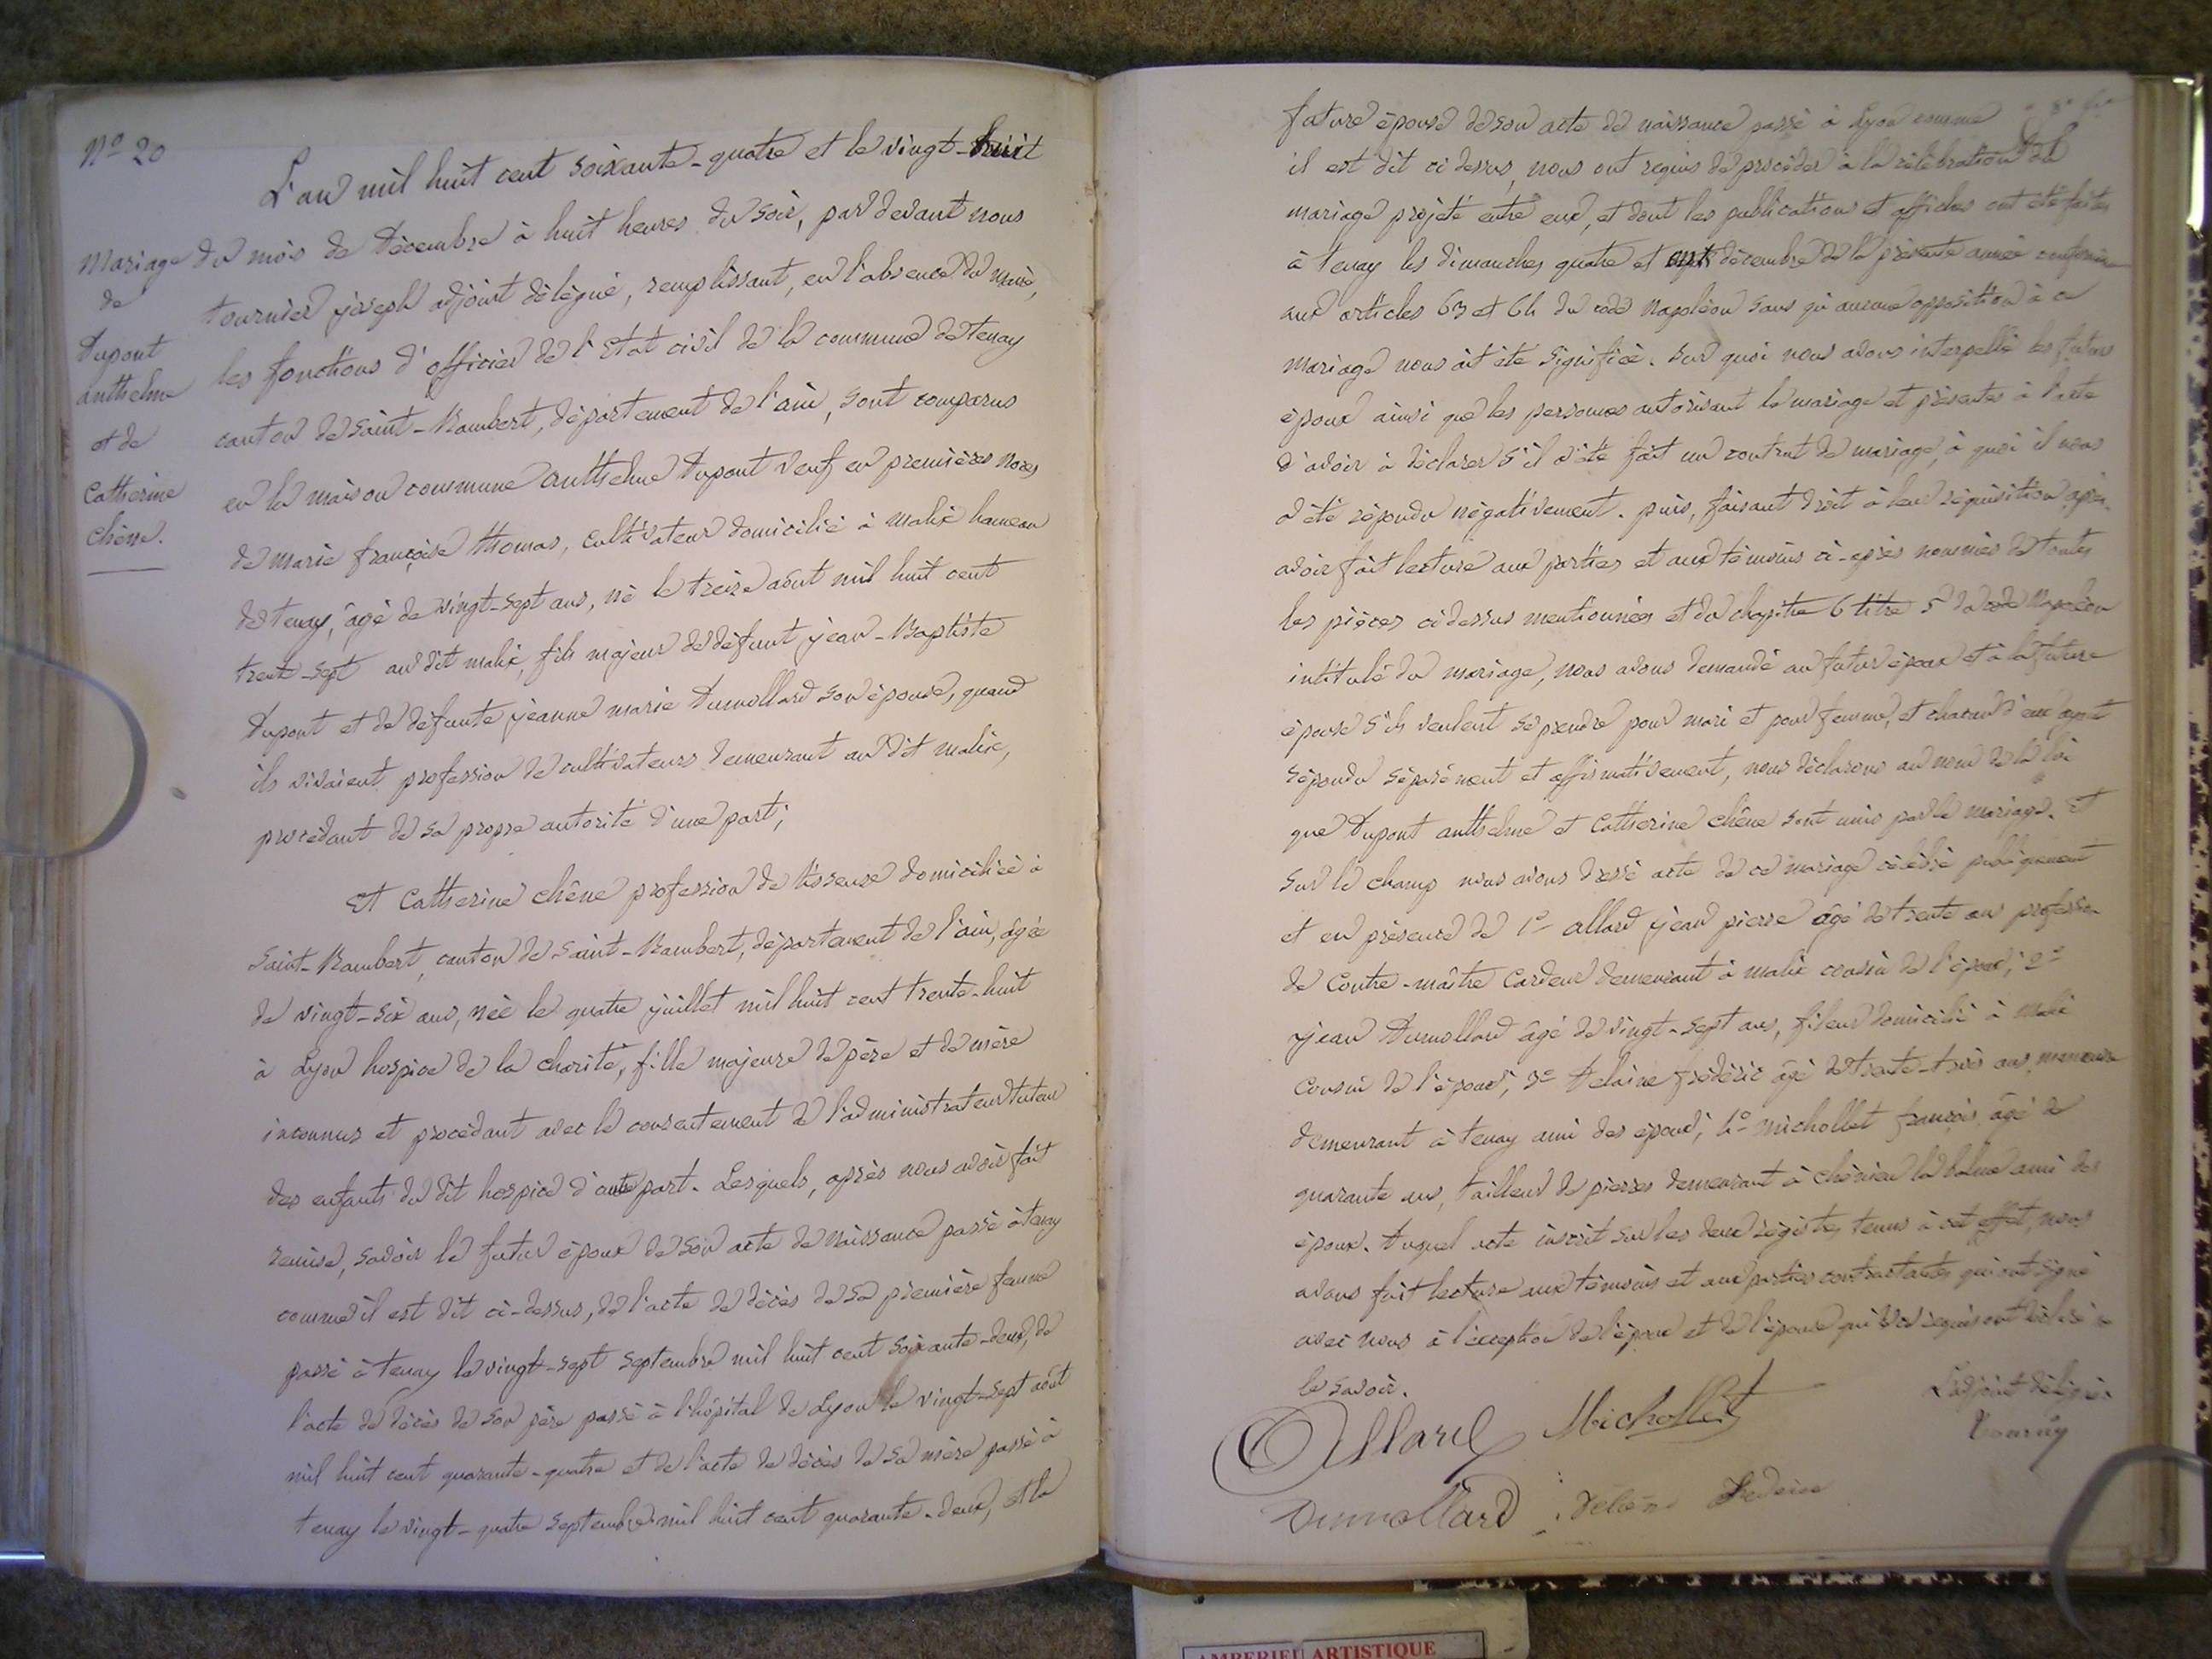 N° 20
Mariage
de
Dupont
anthelme
et de
Catherine
chêne.
L'an mil huit cent soixante-quatre et le vingt-huit
du mois de Décembre à huit heures du soir, par devant nous
tournier joseph adjoint délégué, remplissant, en l'absence du Maire,
les fonctions d'officier de l'Etat civil de la commune de tenay
canton de Saint-Rambert, département de l'ain, sont comparus
en la maison commune anthelme Dupont veuf en premières noces
de marie françoise thomas, cultivateur domicilié à malix hameau
de tenay, âgé de vingt-sept ans, né le treize août mil huit cent
trente-sept au dit malix, fils majeur de défunt jean-Baptiste
Dupont et de défunte jeanne marie Dumollard son épouse, quand
ils vivaient profession de cultivateurs demeurant au dit malix,
procédant de sa propre autorité d'une part;
Et Catherine chêne profession de tisseuse domiciliée à
Saint-Rambert, canton de Saint-Rambert, département de l'ain, âgée
de vingt-six ans, née le quatre juillet mil huit cent trente-huit
à Lyon hospice de la charité, fille majeure de père et de mère
inconnus et procédant avec le consentement de l'administrateur tuteur
des enfants du dit hospice d'autre part. Lesquels, après nous avoir fait
remise, savoir le futur époux de son acte de naissance passé à tenay
comme il est dit ci-dessus, de l'acte de décès de sa première femme
passé à tenay le vingt-sept septembre mil huit cent soixante-deux, de
l'acte de décès de son père passé à l'hôpital de Lyon le vingt-sept août
mil huit cent quarante-quatre et de l'acte de décès de sa mère passé à
tenay le vingt-quatre septembre mil huit cent quarante-deux, et la
future épouse de son acte de naissance passé à Lyon comme
il est dit ci dessus, nous ont requis de procéder à la célébration du
mariage projeté entre eux, et dont les publications et affiches ont été faites
à tenay les dimanches quatre et onze décembre de la présente année conformé
aux articles 63 et 64 du code Napoléon sans qu'aucune opposition à ce
mariage nous ait été signifiée. Sur quoi nous avons interpellé les futurs
époux ainsi que les personnes autorisant le mariage et présentes à l'acte
d'avoir à déclarer s'il a été fait un contrat de mariage, à quoi il nous
a été répondu négativement. puis, faisant droit à leur réquisition après
avoir fait lecture aux parties et aux témoins ci-après nommés de toutes
les pièces ci dessus mentionnées et du chapitre 6 titre 5 du code Napoléon
intitulé du mariage, nous avons demandé au futur époux et à la future
épouse s'ils veulent se prendre pour mari et pour femme, et chacun d'eux ayant
répondu séparément et affirmativement, nous déclarons au nom de la loi
que Dupont anthelme et Catherine chêne sont unis par le mariage. Et
sur le champ nous avons dressé acte de ce mariage célébré publiquement
et en présence de 1° allard jean pierre âgé de trente ans profession
de Contre-maître Cardeur demeurant à malix cousin de l'époux; 2°
jean Dumollard âgé de vingt-sept ans, fileur domicilié à malix
Cousin de l'époux; 3° Delaine frédéric âgé de trente-trois ans,
demeurant à tenay ami des époux; 4° michollet françois âgé de
quarante ans, tailleur de pierres demeurant à la balme ami des
époux. Duquel acte inscrit sur les deux registres tenus à cet effet, nous
avons fait lecture aux témoins et aux parties contractantes qui ont signé
avec nous à l'exception de l'époux et de l'épouse qui de ce requis ont déclaré ne
le savoir.
Allard Michollet L'adjoint délégué
Dumollard
AMBERIEU ARTISTIQUE